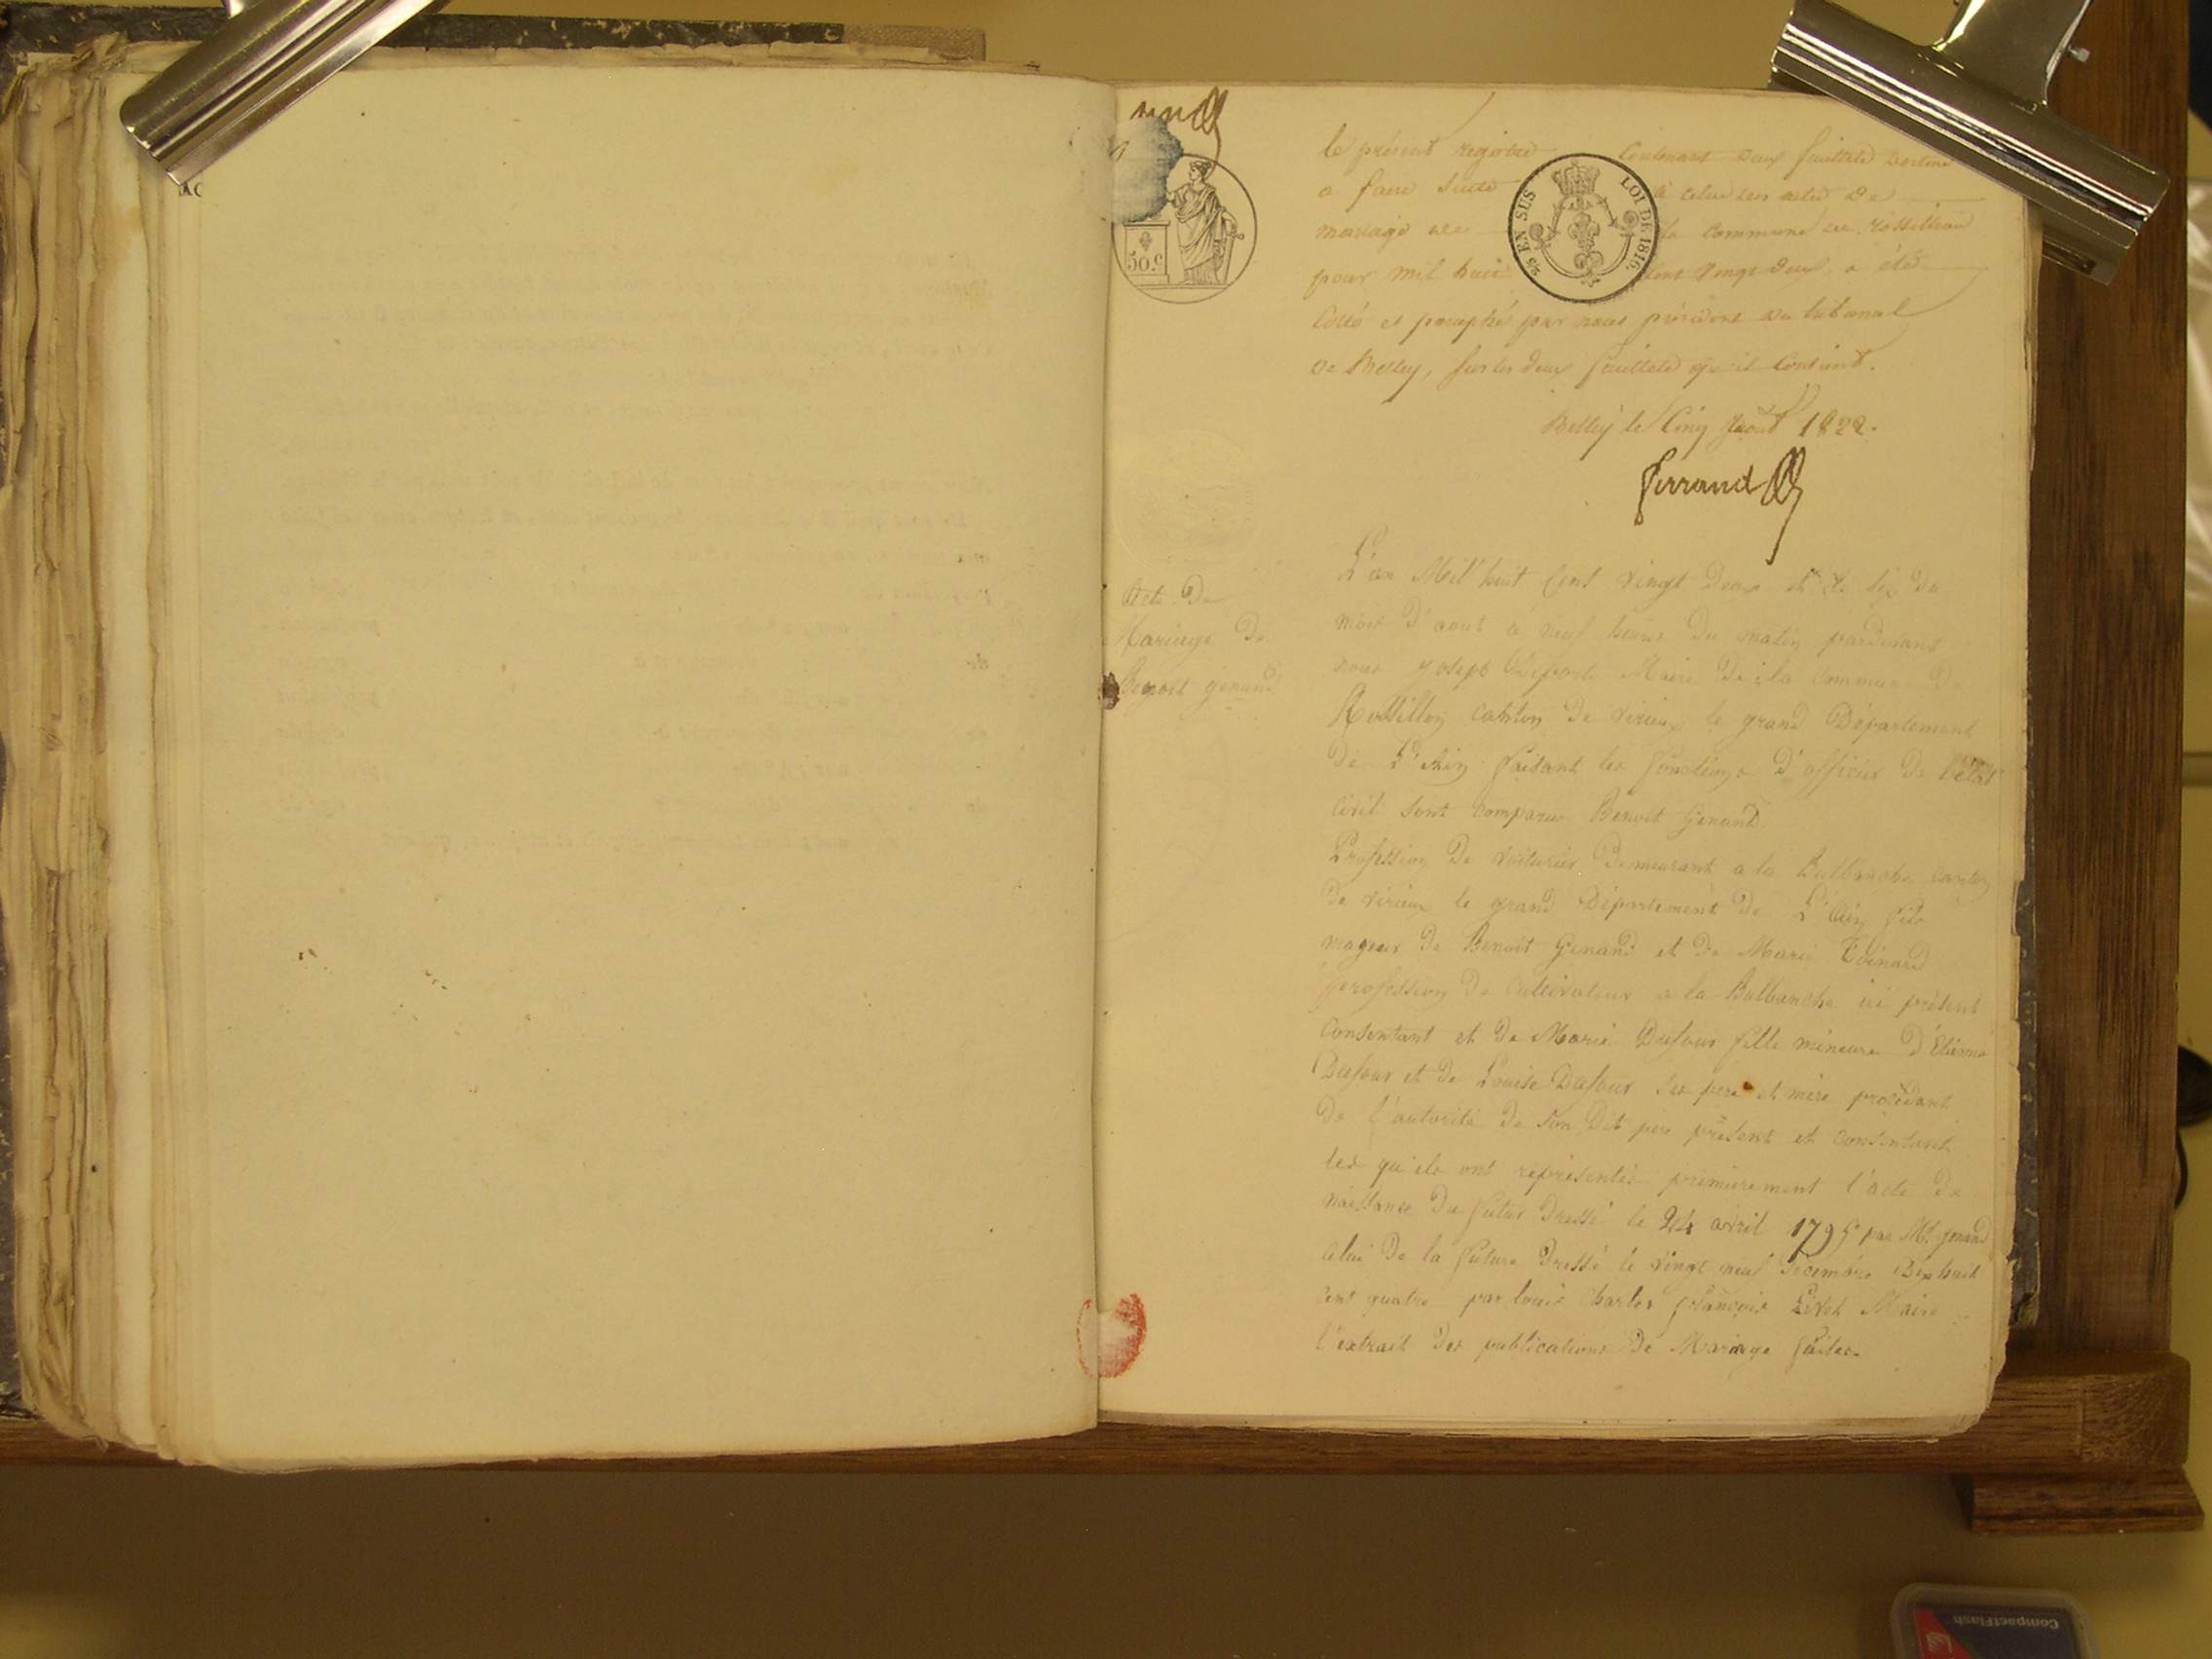 50.c
25 EN SUS LOI DE 1816.
le présent registre contenant deux feuillets destiné
a faire suite à celui des actes de
mariage de la commune de rossillon
pour mil huit cent vingt deux, a été
Cotté et paraphé par nous président du tribunal
de Belley, sur les deux feuillets qu'il contient.
Belley le Cinq Aout 1822.
Ferrand
Acte De
Mariage De
Benoit genand
L'an Mil huit Cent vingt Deux et le six du
mois D'aout a neuf heures Du matin pardevant
nous Joseph Maire De la Commune De
Rossillon canton De virieux le grand Département
De L'Ain faisant les fonctions D'officier De l'état
Civil sont comparus Benoit Genand
Profession De voiturier Demeurant a la Balbanche canton
De virieux le grand Département De L'Ain fils
mageur De Benoit Genand et De Marie
profession De cultivateur a la Balbanche ici présent
Consentant et De Marie Dufour fille mineure D'Etienne
Dufour et De Louise Dufour ses pere et mère procédant
De l'autorité De son Dit pere présent et consentant
les qu'els ont représentés premièrement l'acte De
naissance Du futur Dressé le 24 avril 1795 par Mr genand
Celui De la future Dressé le vingt neuf Décembre Dix huit
cent quatre par louis Charles françois Maire
l'extrait Des publications De Mariage faites
CompactFlash